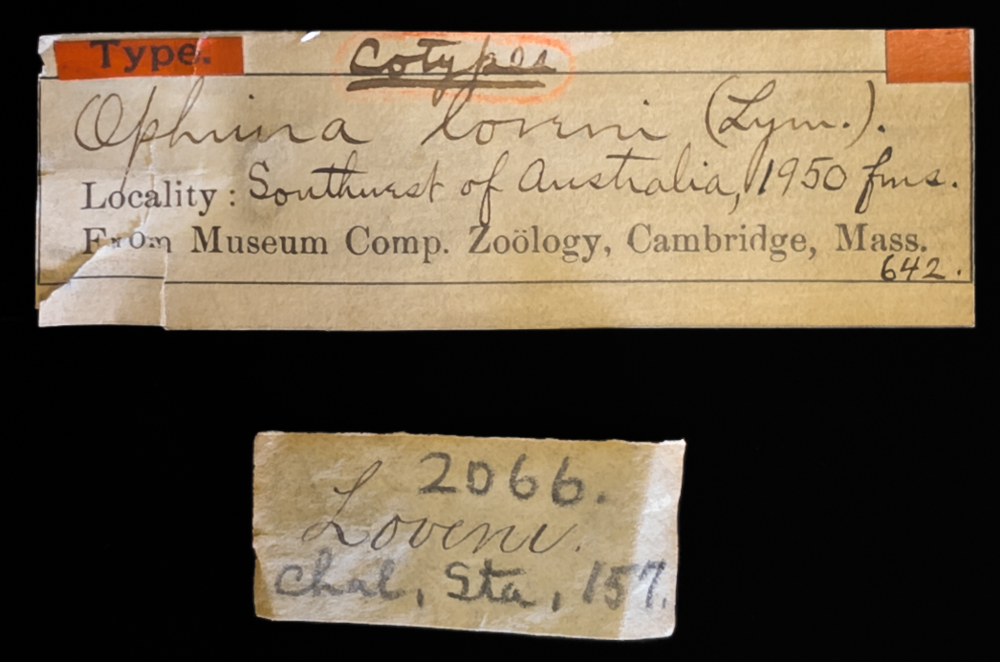 Type. Cotypes
Ophiura loveni (Lym.).
Locality: Southwest of Australia, 1950 fms.
From Museum Comp. Zoölogy, Cambridge, Mass.
642.
2066.
Loveni.
Chal, Sta, 157.